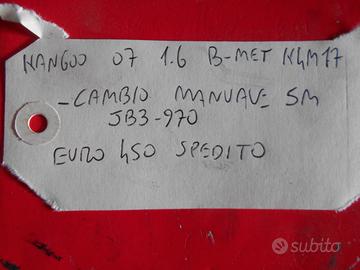 KANGOO 07 1.6 B-MET K4M17
- CAMBIO MANUALE 5M
JB3-970
EURO 450 SPEDITO
subito